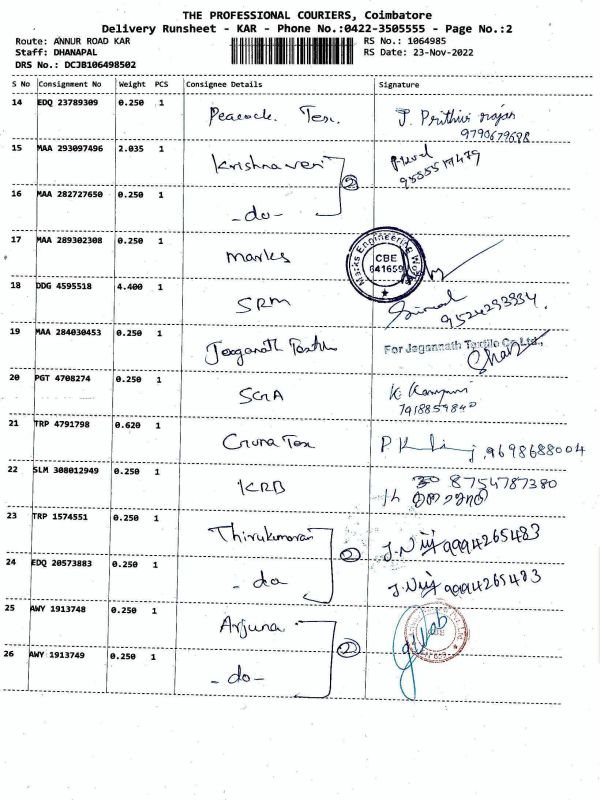 THE PROFESSIONAL COURIERS, Coimbatore
Delivery Runsheet - KAR - Phone No.:0422-3505555 - Page No.:2
Route: ANNUR ROAD KAR RS No.: 1064985
Staff: DHANAPAL RS Date: 23-Nov-2022
DRS No.: DCJB106498502
S No Consignment No Weight PCS Consignee Details Signature
14 EDQ 23789309 0.250 1 Peacock Tex. J. Prithivi rajan
9790679688
15 MAA 293097496 2.035 1 Krishnaveni
9555517479
16 MAA 282727650 0.250 1 -do- 2
17 MAA 289302308 0.250 1 Marks Marks Engineering Works CBE 641659
18 DDG 4595518 4.400 1 SRM
9524293934.
19 MAA 284030453 0.250 1 Jeganath Textile For Jagannath Textile Co Ltd.,
20 PGT 4708274 0.250 1 SGA K
7918859840
21 TRP 4791798 0.620 1 Guna Tex P K 9698688004
22 SLM 308012949 0.250 1 KRB 8754787380
23 TRP 1574551 0.250 1 Thirukumaran J.Nij 9994265483
24 EDQ 20573883 0.250 1 -do- 2 J.Nij 9994265483
25 AWY 1913748 0.250 1 Arjuna
26 AWY 1913749 0.250 1 -do- 2